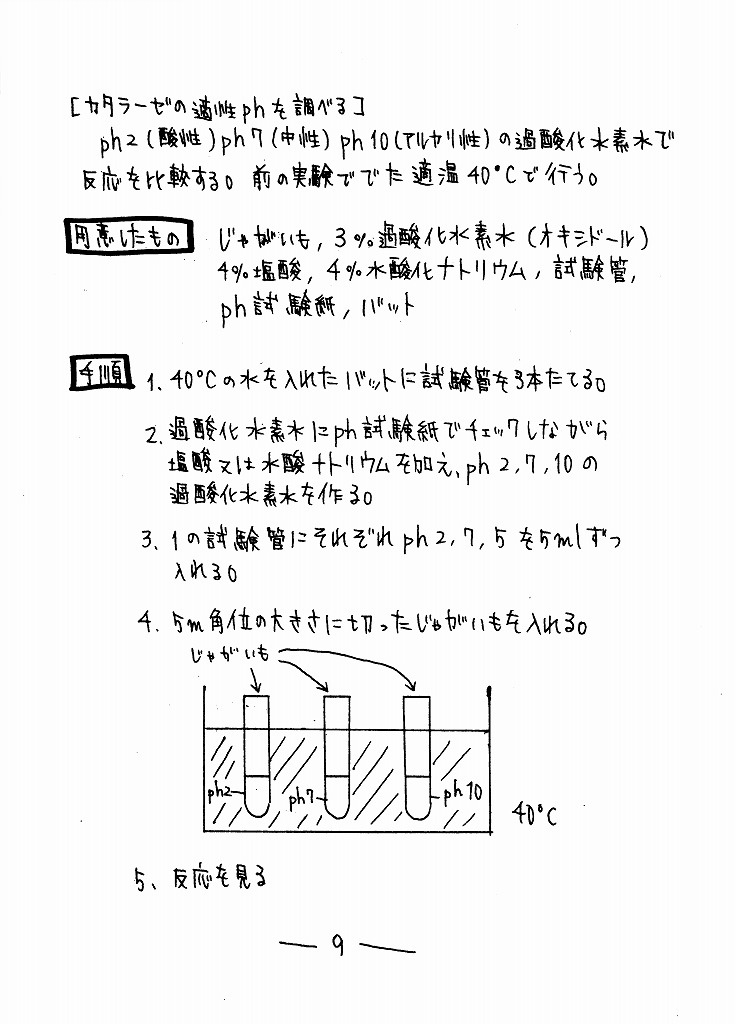 [カタラーゼの適性phを調べる]
ph2(酸性)ph7(中性)ph10(アルカリ性)の過酸化水素水で
反応を比較する。前の実験ででた適温40°Cで行う。
用意したもの じゃがいも,3%過酸化水素水(オキシドール)
4%塩酸,4%水酸化ナトリウム,試験管,
ph試験紙,バット
手順 1、40°Cの水を入れたバットに試験管を3本たてる。
2、過酸化水素水にph試験紙でチェックしながら
塩酸又は水酸ナトリウムを加え、ph2,7,10の
過酸化水素水を作る。
3、1の試験管にそれぞれph2,7,5を5mlずつ
入れる。
4、5m角位の大きさに切ったじゃがいもを入れる。
じゃがいも
ph2 ph7 ph10
40°C
5、反応を見る
— 9 —